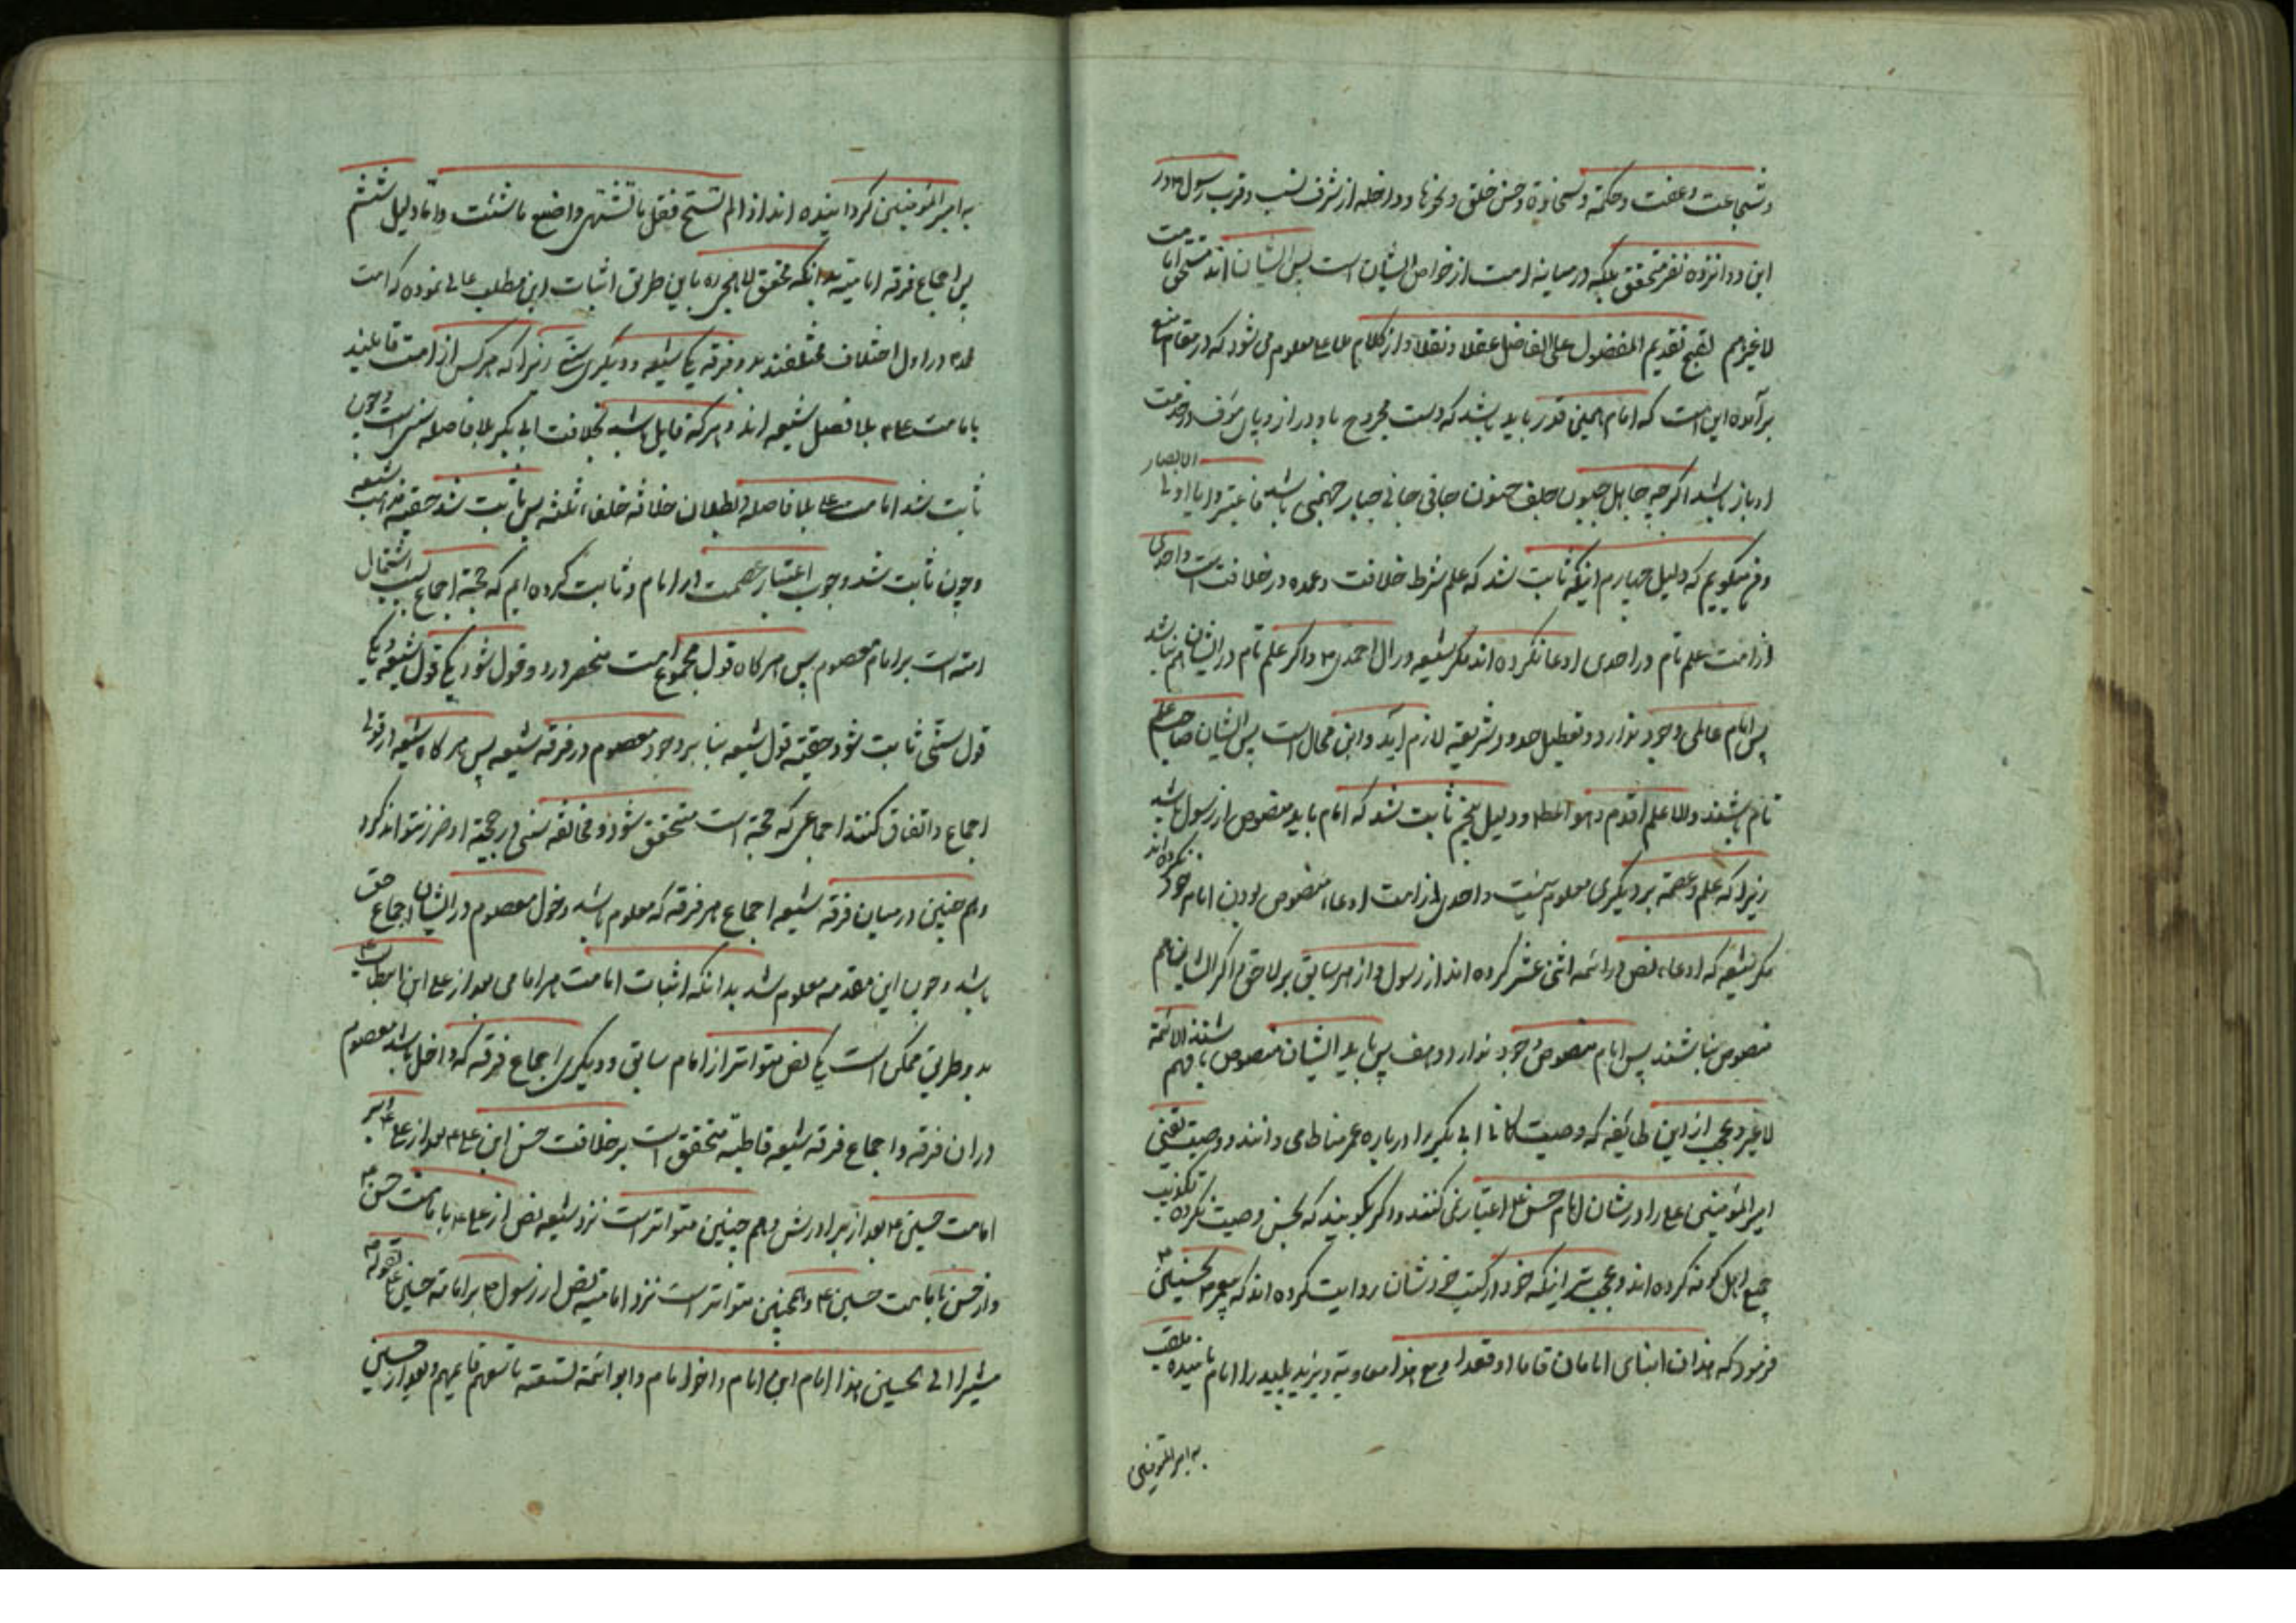 و شجاعت و عفت و حکمة و سخاوة و حسن خلق و نحوها و داخله از شرف نسب و قرب رسول ص در
این دوانزده نفر متحقق بلکه در میانه امت از خواص ایشان است پس ایشان اند مستحق امامت
لا غیرهم لقبح تقدیم المفضول علی الفاضل عقلا و نقلا و از کلام معلوم می شود که در مقام منع
برآمده این است که امام همین قدر باید باشد که دست مجروح باو دراز و پای در خدمت
او باز باشد اگر چه جاهل جلف جافی جانی جبار جهنمی باشد فاعتبروا یا اولی الابصار
و می گویم که دلیل چهارم اینکه ثابت شد که علم شرط خلافت و عمده در خلافت است و احدی
از امت علم تام در احدی ادعا نکرده اند مگر شیعه در آل احمد ص و اگر علم تام در ایشان هم نباشد
پس امام عاملی وجود ندارد و تعطیل حدود شریعة لازم آید و این محال است پس ایشان صاحب علم
تام باشند والاعلم اقدم و هو المط و دلیل پنجم ثابت شد که امام باید منصوص از رسول باشد
زیرا که علم و عصمة بر دیگری معلوم نیست و احدی از امت ادعاء منصوص بودن امام خود نکرده اند
مگر شیعه که ادعاء نص در ائمه اثنی عشر کرده اند از رسول و از هر سابق بر لاحق و اگر ایشان هم
منصوص نباشند پس امام منصوص وجود ندارد و هف پس باید ایشان منصوص باشند لانهم الائمة
لا غیر و عجب از این طایفه که وصیت ابی بکر را درباره عمر مناط می دانند و وصیت یقینی
امیرالمؤمنین علی را در شان امام حسن ع اعتبار نمی کنند و اگر بگویند که بحسن وصیت نکرده تکذیب
جمیع اهل کوفه کرده اند و عجب تر اینکه خود در کتب خودشان روایت کرده اند که پیغمبر ص بحسنین ع
فرمود که هذان ابنای امامان قاما او قعدا و مع هذا معاویة و یزید پلید را امام نامیده ملقب
به امیرالمؤمنین
به امیرالمؤمنین گردانیده اند اذ الم تستح فقل ما تشتهی و اصنع ما شئت و اما دلیل ششم
پس اجماع فرقه امامیة بدانکه محقق لاهجی ره باین طریق اثبات این مطلب عالی نموده که امت
محمد در اول اختلاف مختلفند بدو فرقه یکی شیعه و دیگری سنی زیرا که هر کس از امت قایلند
بامامت علی ع بلا فصل شیعه اند و هر که قایل باشد بخلافت ابی بکر بلا فاصله سنی است و چون
ثابت شد امامت علی بلا فاصله و بطلان خلافة خلفاء ثلثه پس ثابت شد حقیة مذهب شیعه
و چون ثابت شد وجوب اعتبار عصمت در امام و ثابت کرده ایم که حجیة اجماع بسبب اشتمال
امته است بر امام معصوم پس هرگاه قول مجموع امت منحصر در دو قول شود یکی قول شیعه و یکی
قول سنی ثابت شود حقیة قول شیعه بنا بر وجود معصوم در فرقه شیعه پس هرگاه شیعه در قولی
اجماع و اتفاق کنند اجماعی که حجة است متحقق شود و مخالفه سنی در حجیة او ضرر نتواند کرد
و هم چنین در میان فرقه شیعه اجماع هر فرقه که معلوم باشد دخول معصوم در ایشان اجماع حق
باشد و چون این مقدمه معلوم شد بدانکه اثبات امامت هر امامی بعد از علی ابن ابیطالب ع
بدو طریق ممکن است یکی نص متواتر از امام سابق و دیگری اجماع فرقه که داخل باشد معصوم
در آن فرقه و اجماع فرقه شیعه قاطبة متحقق است بر خلافت حسن ابن علی ع بعد از علی ع و بر
امامت حسین ع بعد از برادرش و هم چنین متواتر است نزد شیعه نص از علی ع بامامت حسن ع
و از حسن بامامت حسین ع و همچنین متواتر است نزد امامیه نص از رسول ص بر امامة حسین ع بقوله ص
مشیرا الی الحسین هذا امام ابن امام و اخو امام و ابو ائمة تسعة تاسعهم قایمهم و بعد از حسین